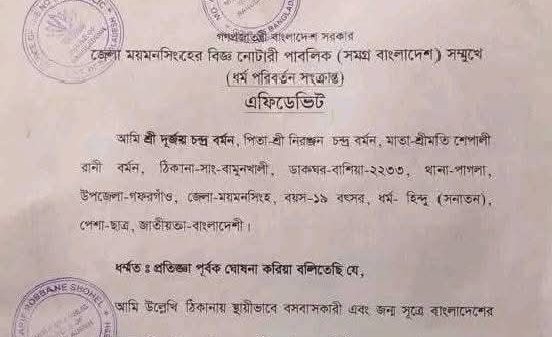 গণপ্রজাতন্ত্রী বাংলাদেশ সরকার
জেলা ময়মনসিংহের বিজ্ঞ নোটারী পাবলিক (সমগ্র বাংলাদেশ) সম্মুখে
(ধর্ম পরিবর্তন সংক্রান্ত)
এফিডেভিট
আমি শ্রী দূর্জয় চন্দ্র বর্মন, পিতা-শ্রী নিরঞ্জন চন্দ্র বর্মন, মাতা-শ্রীমতি শেপালী
রানী বর্মন, ঠিকানা-সাং-বামুনখালী, ডাকঘর-বাশিয়া-২২৩৩, থানা-পাগলা,
উপজেলা-গফরগাঁও, জেলা-ময়মনসিংহ, বয়স-১৯ বৎসর, ধর্ম- হিন্দু (সনাতন),
পেশা-ছাত্র, জাতীয়তা-বাংলাদেশী।
ধর্ম্মত ঃ প্রতিজ্ঞা পূর্বক ঘোষনা করিয়া বলিতেছি যে,
আমি উল্লেখি ঠিকানায় স্থায়ীভাবে বসবাসকারী এবং জন্ম সূত্রে বাংলাদেশের
ROBBANE SHOHEL